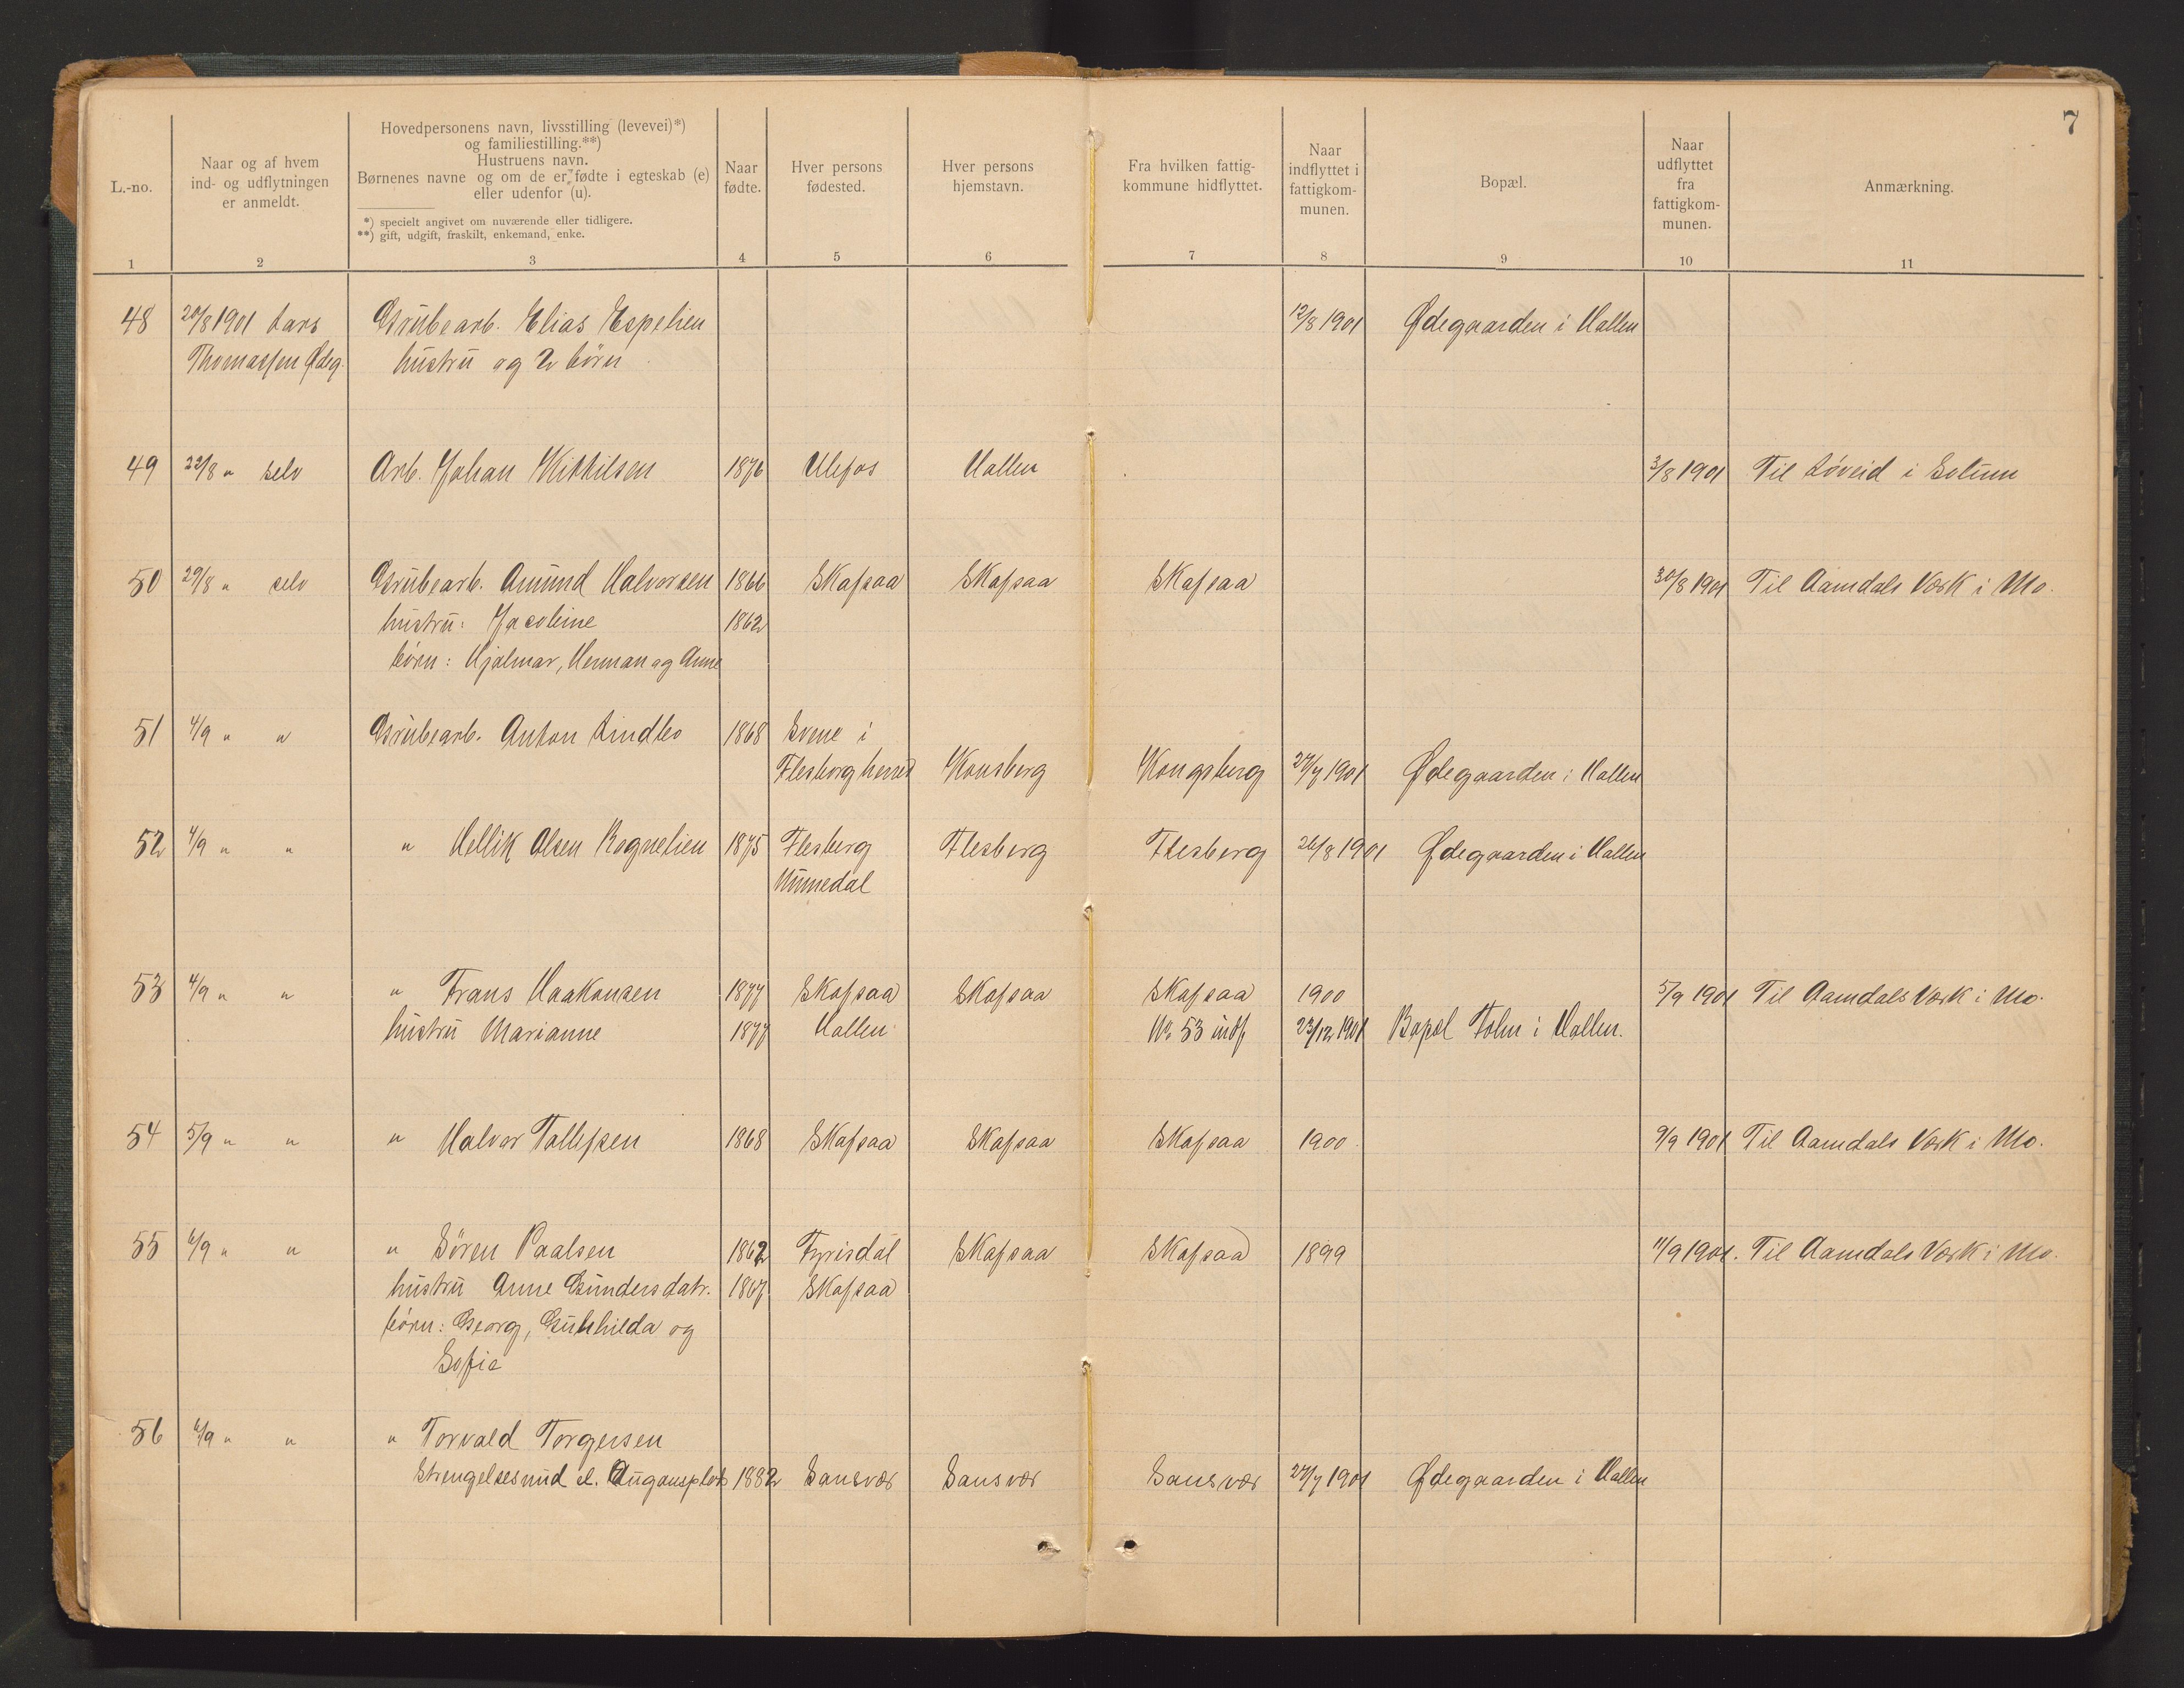 7
L.-no.
Naar og af hvem
ind- og udflytningen
er anmeldt.
Hovedpersonens navn, livsstilling (levevei)*)
og familiestilling.**)
Hustruens navn.
Børnenes navne og om de er fødte i egteskab (e)
eller udenfor (u).
*) specielt angivet om nuværende eller tidligere.
**) gift, udgift, fraskilt, enkemand, enke.
Naar
fødte.
Hver persons
fødested.
Hver persons
hjemstavn.
Fra hvilken fattig-
kommune hidflyttet.
Naar
indflyttet i
fattigkom-
munen.
Bopæl.
Naar
udflyttet
fra
fattigkom-
munen.
Anmærkning.
1 2 3 4 5 6 7 8 9 10 11
48 20/8 1901 Lars Grubearb. Elias Espelien 12/8 1901 Ødegaarden i Hallen
Thomassen Ødeg. hustru og 2 børn
49 22/8 " selv Arb. Johan Kittilsen 1876 Ulefos Hallen 3/8 1901 Til Løveid i Solum
50 29/8 " selv Grubearb. Amund Halvorsen 1866 Skafsaa Skafsaa Skafsaa 30/8 1901 Til Aamdals Værk i Mo.
hustru: Jacobine 1862
børn: Hjalmar, Herman og Anne
51 4/9 " " Grubearb. Anton Lindbo 1868 Svene i
Flesberg herred Konsberg Kongsberg 27/7 1901 Ødegaarden i Hallen
52 4/9 " " " Hellik Olsen Rognelien 1875 Flesberg Flesberg Flesberg 26/8 1901 Ødegaarden i Hallen
Numedal
53 4/9 " " " Frans Haakonsen 1877 Skafsaa Skafsaa Skafsaa 1900 5/9 1901 Til Aamdals Værk i Mo.
hustru Marianne 1877 Hallen No 53 indf 23/12 1901 Bopæl Toln i Hallen.
54 5/9 " " " Halvor Tallefsen 1868 Skafsaa Skafsaa Skafsaa 1900. 9/9 1901 Til Aamdals Værk i Mo.
55 6/9 " " " Søren Paalsen 1862 Fyrisdal Skafsaa Skafsaa 1899 11/9 1901. Til Aamdals Værk i Mo.
hustru Anne Gundersdatr. 1867 Skafsaa
børn: Georg, Gunhilda og
Sofie
56 6/9 " " " Torvald Torgersen
Strengelsesrud 1882 Sansvær Sansvær Sansvær 27/7 1901 Ødegaarden i Hallen